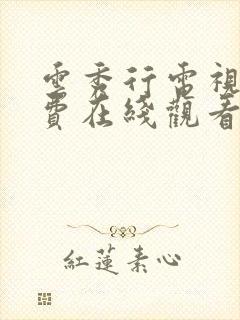 雲秀行電視
費在綫觀看
紅蓮素心